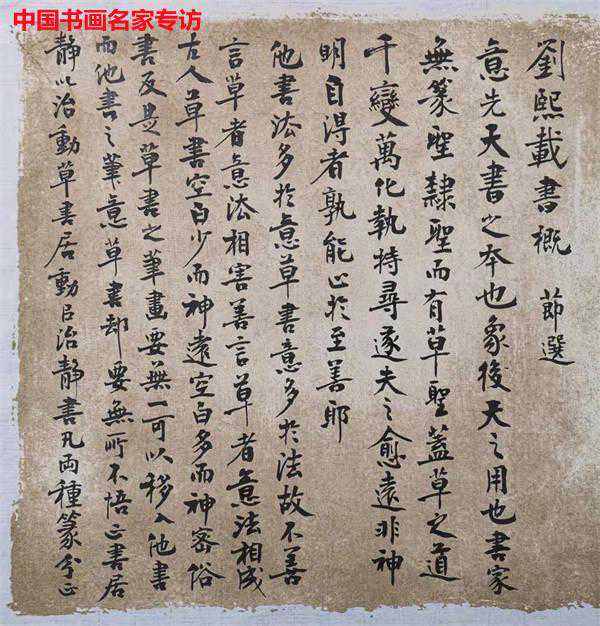 中国书画名家专访
劉熙載書概 節選
意先天書之本也象後天之用也書家
無篆聖隸聖而有草聖蓋草之道
千變萬化執持尋逐失之愈遠非神
明自得者孰能止於至善耶
他書法多於意草書意多於法故不善
言草者意法相害善言草者意法相成
古人草書空白少而神遠空白多而神密俗
書反是草書之筆畫要無一可以移入他書
而他書之筆意草書却要無所不悟正書居
靜以治動草書居動以治靜書凡兩種篆分正